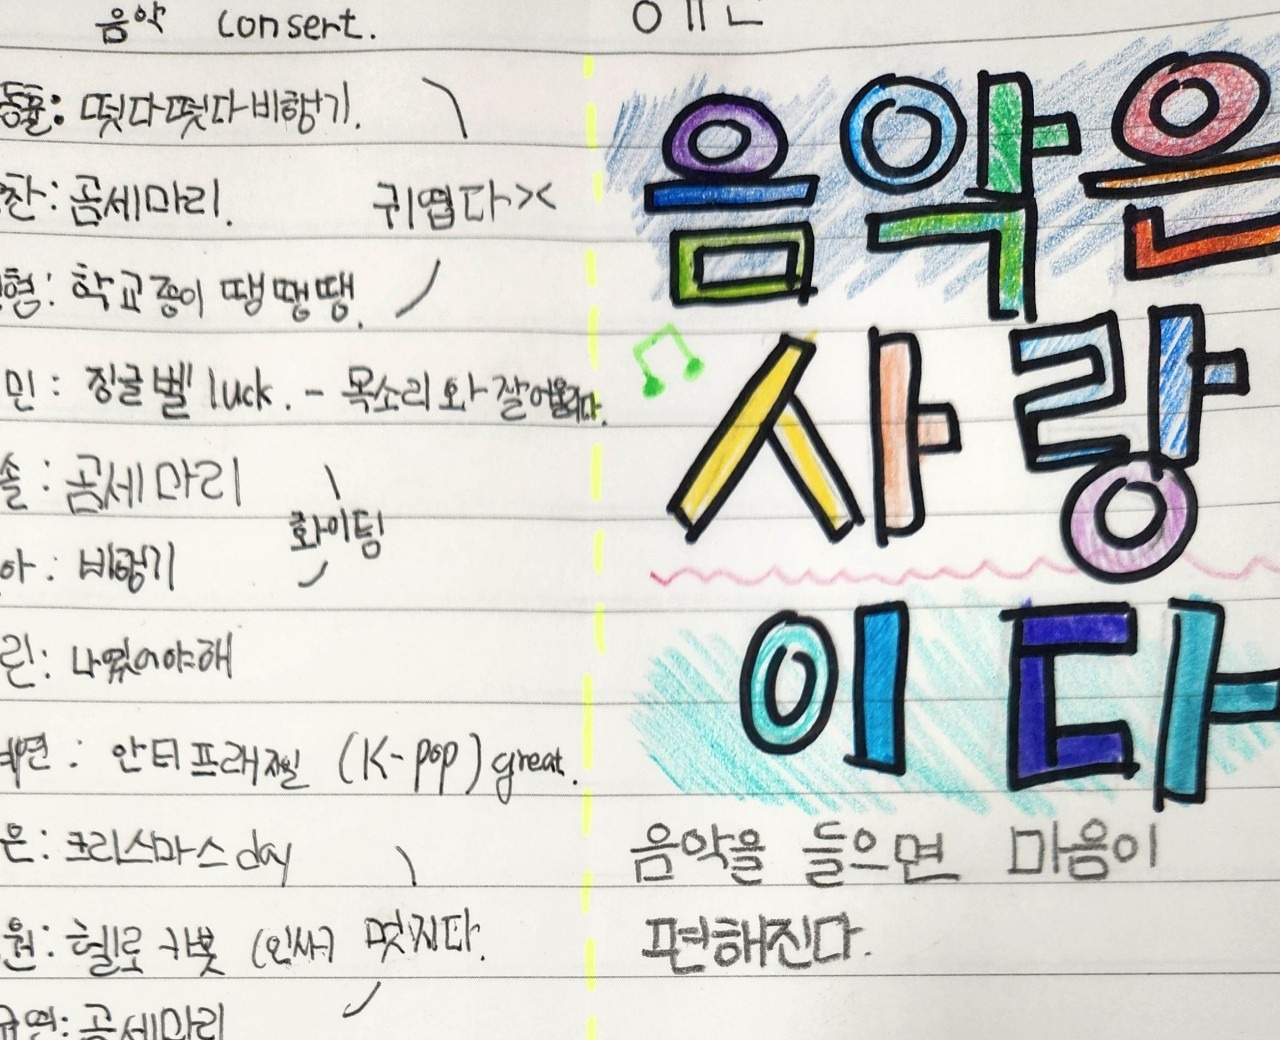 음악 consert.
떳다떳다비행기.
찬: 곰세마리. 귀엽다><
형: 학교종이 땡땡땡.
민: 징글벨 luck. - 목소리와 잘어울리다.
솔: 곰세마리
화이팅
아: 비행기
린: 나였어야해
예연: 안티프래질 (K-pop) great.
은: 크리스마스 day
원: 헬로 카봇 (인싸) 멋지다.
연: 곰세마리
음악은
사랑
이다
음악을 들으면 마음이
편해진다.